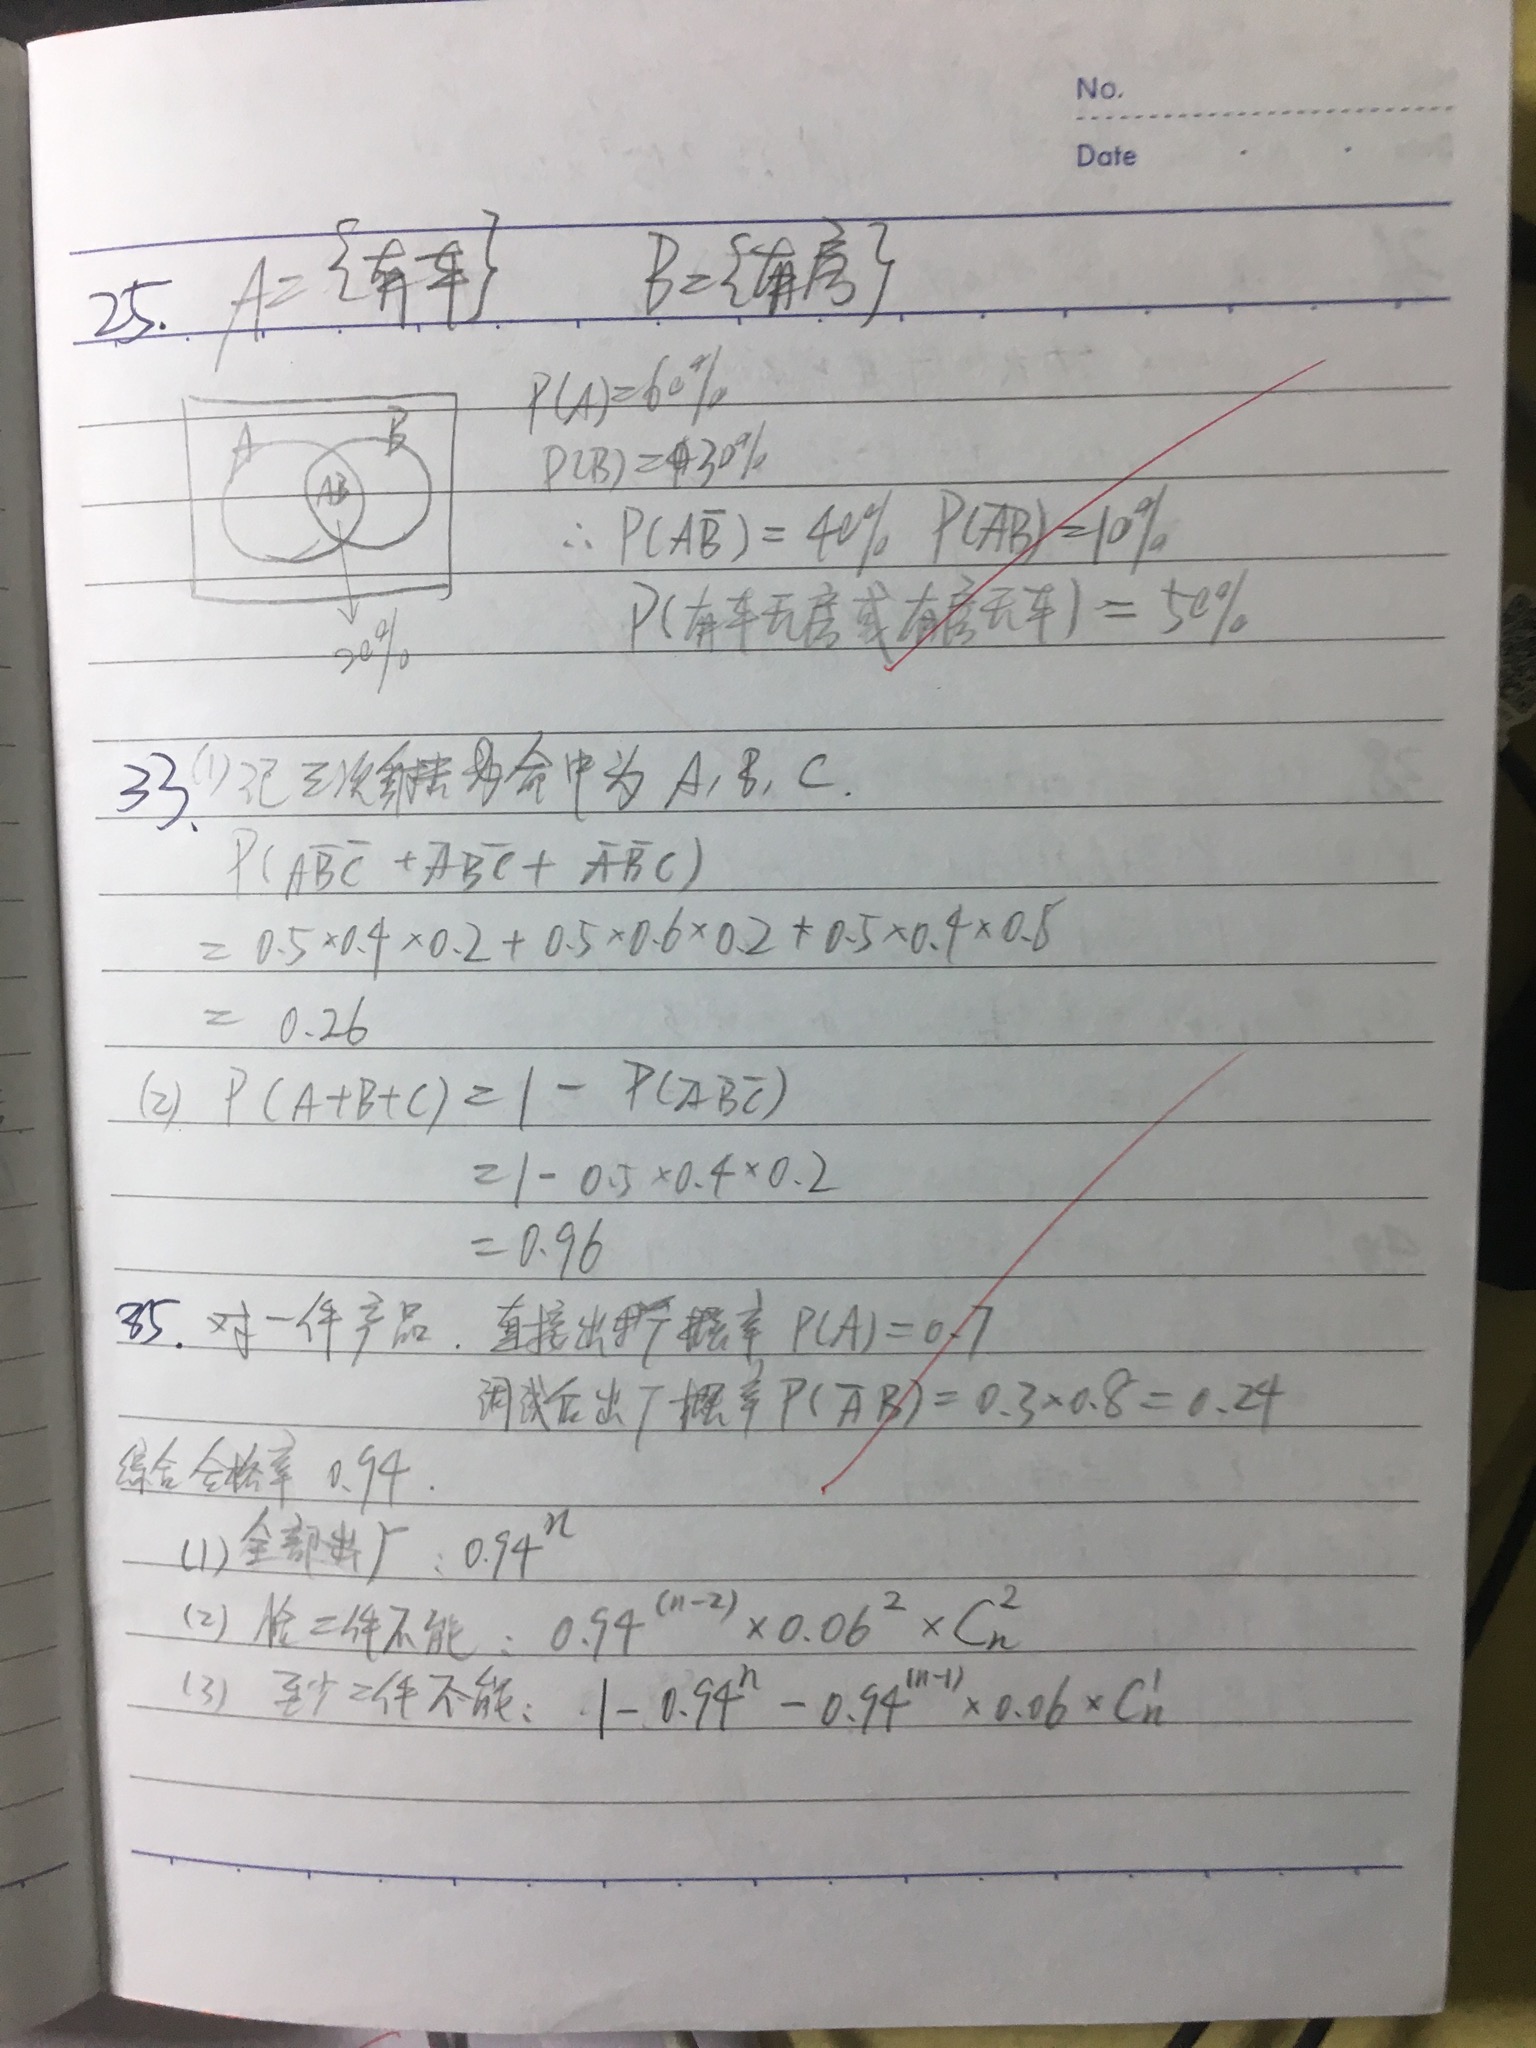 No.
Date
25. A={有车} B={有房}
P(A)=60%
A B
P(B)=30%
AB
∴ P(AB̅)=40% P(A̅B)=10%
P(有车无房或有房无车)=50%
20%
33.(1)记三次射击命中为 A, B, C.
P(AB̅C̅+A̅BC̅+A̅B̅C)
= 0.5×0.4×0.2+0.5×0.6×0.2+0.5×0.4×0.8
= 0.26
(2) P(A+B+C)=1-P(A̅B̅C̅)
=1-0.5×0.4×0.2
=0.96
35. 对一件产品. 直接出厂概率 P(A)=0.7
调试后出厂概率 P(A̅B)=0.3×0.8=0.24
综合合格率 0.94.
(1)全部出厂: 0.94ⁿ
(2) 恰二件不能: 0.94⁽ⁿ⁻²⁾×0.06²×Cₙ²
(3) 至少二件不能: 1-0.94ⁿ-0.94⁽ⁿ⁻¹⁾×0.06×Cₙ¹